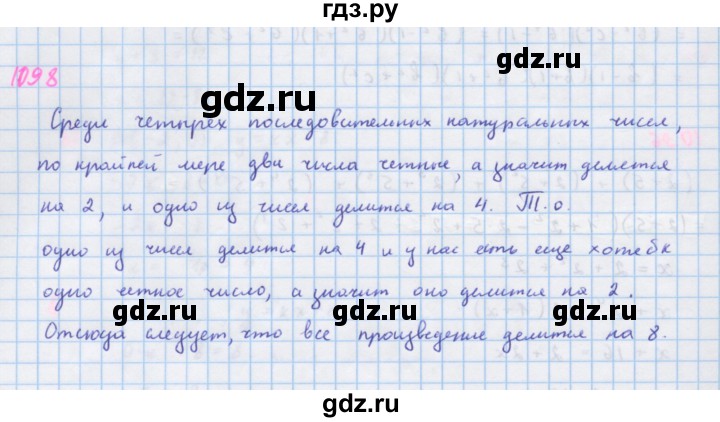 гдз.ру
1098
gdz.ru
gdz.ru
Среди четырех последовательных натуральных чисел,
по крайней мере два числа четные, а значит делятся
на 2, и одно из чисел делится на 4. Т.о.
gdz.ru
gdz.ru
одно из чисел делится на 4 и у нас есть еще хотебы
одно четное число, а значит оно делится на 2.
Отсюда следует, что все произведение делится на 8.
gdz.ru
gdz.ru
gdz.ru